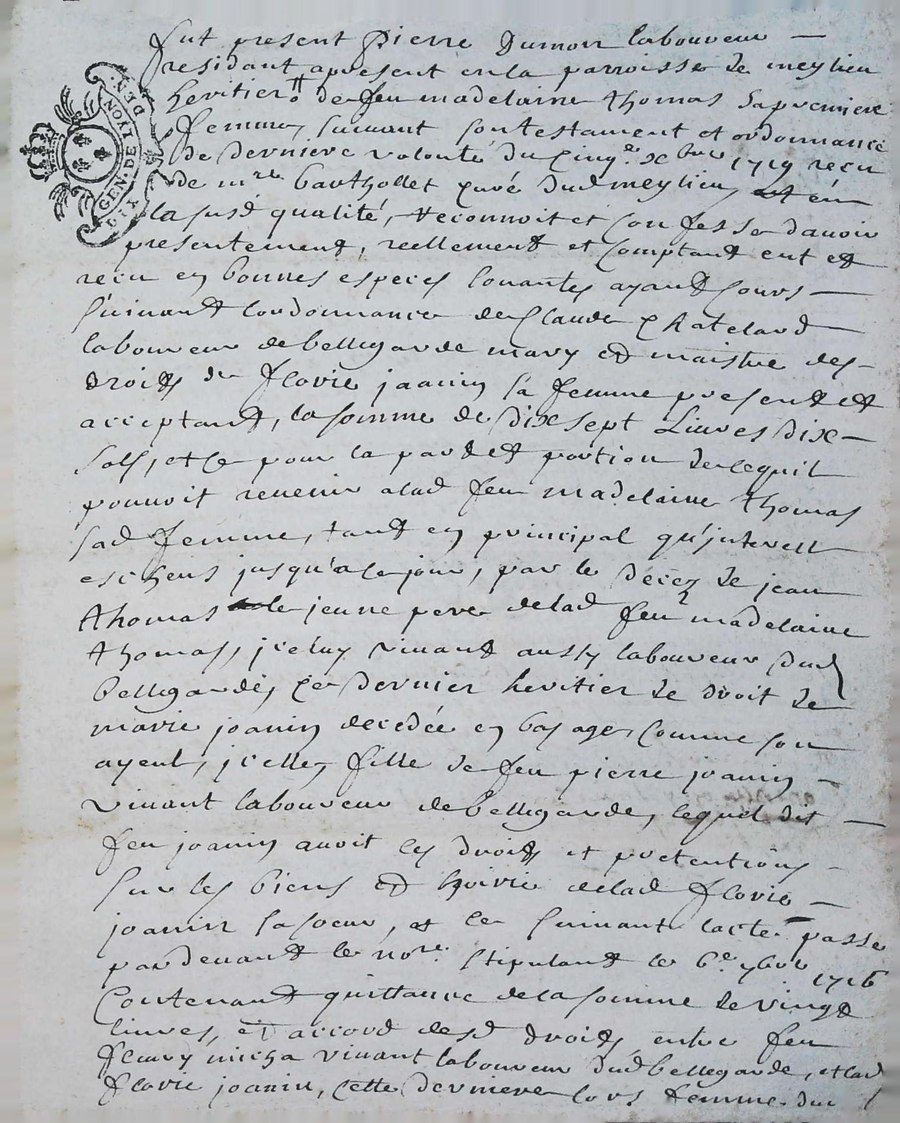 fut present Pierre Dumon laboureur
residant apresent en la parroisse de meylieu
heritier de feu madelaine thomas sa premiere
femme, suivant son testament et ordonnance
de derniere volonté du cinq.e xbre 1719 receu
de mre barthollet curé dud meylieu, en
la susd qualité, reconnoit et confesse d'avoir
presentement, reellement et comptant eut et
receu en bonnes especes louantes ayant cours
suivant lordonnance de Claude Chatelard
laboureur de bellegarde mary et maistre des
droits de florie joanin sa femme present et
acceptant, la somme de dix sept Livres dix
sols, et ce pour la part et portion de ce quil
pouvoit revenir a lad feu madelaine thomas
sad femme, tant en principal qu'jnterest
escheus jusqu'a ce jour, par le decez de jean
thomas le jeune pere delad feu madelaine
thomas, jceluy vivant aussy laboureur dud
bellegarde, ce dernier heritier de droit de
marie joanin decedée en bas age, comme son
ayeul, jcelle, fille de feu pierre joanin
vivant laboureur de bellegarde, lequel dit
feu joanin avoit les droits et pretentions
sur les biens et hoirie delad florie
joanin sa soeur, et ce suivant lacte passé
pardevant le nore stipulant le 6e 7bre 1716
Contenant quittance de la somme de vingt
livres, et accord desd droits, entre feu
fleury micha vivant laboureur dud bellegarde, et lad
florie joanin, cette derniere lors femme du
GEN. DE LYON
DIX DEN.